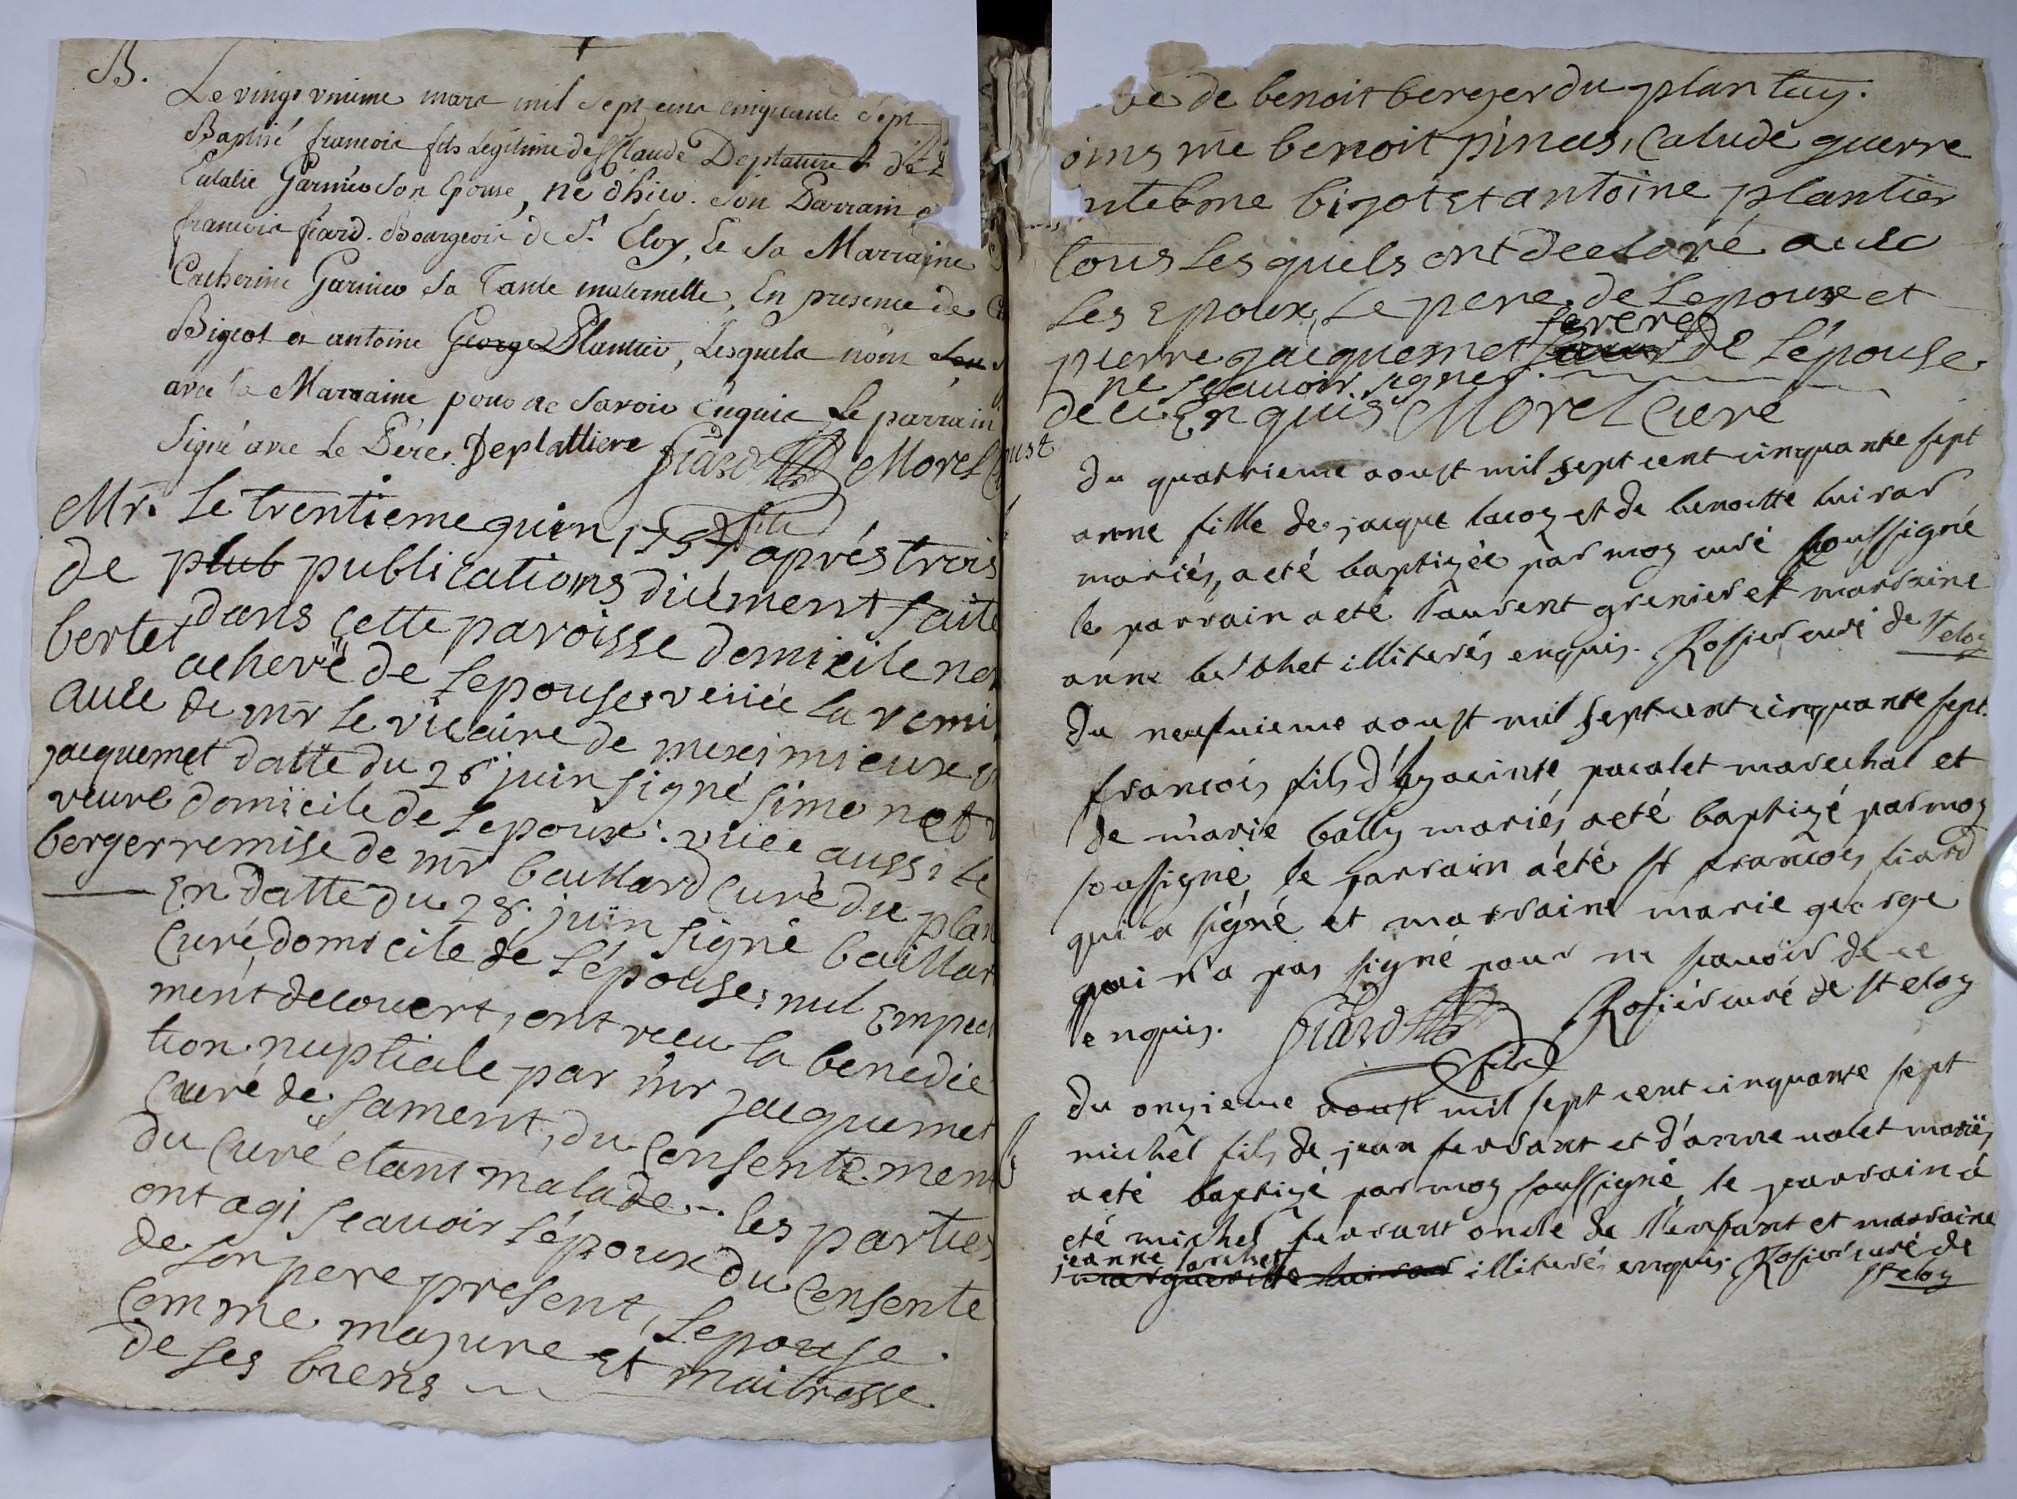 B.
Le vingt unieme mars mil sept cens cinquante sept
Baptisé francois fils Legitime de Claude Deplature & d'
Eulalie Garnier son Epouse, né d'hier. Son Parrain
francois fiard. Bourgeois de St. Eloy, & sa Marraine
Catherine Garnier sa Tante maternelle, En presence de
Bigeot & antoine George Plantier, Lesquels n'ont
avec la Marraine pour ne savoir Enquis Le parrain
Signé avec Le Père. Deplattiere fiard fils Morel
Mr. Le trentieme juin 1757 aprés trois
de plub publications düement faite
bertet dans cette paroisse domicile no
achevé de Lepouse: veüe la remi
avec de mr le vicaire de meximieux
jacquemet datté du 26 juin signé simonet
veuve domicile de Lepoux: vüe aussi le
berger remise de mr baillard curé du plan
En datte du 28 juin signé baillar
Curé domicile de Lépouse: nul Empec
ment decouvert, ont recu la benedic
tion nuptiale par mr jacquemet
curé de samens, du consentement
du Curé etant malade. les parties
ont agi scavoir Lépoux du consente
de son pere present, Lepouse
comme majure et maitresse
de ses biens
ve de benoit berger du plantay.
oins me benoit pineas, Calude guerre
me bizot et antoine plantier
tous Lesquels ont declaré avec
Les Epoux, Le pere de Lepoux et
frere
pierre jacquemet de Lépouse
ne scavoir signer.
de ce Enquis Morel Cure
du quatrieme aoust mil sept cent cinquante sept
anne fille de jacque lacoz et de benoitte luisar
mariés, a eté baptizée par moy curé soussigné
le parrain a eté laurent grenier et marraine
anne berthet illiterés enquis. Rosier curé de st eloy
du neufvieme aoust mil sept cent cinquante sept.
françois fils d'hyacinte pacalet marechal et
de marie bally mariés a eté baptizé par moy
soussigné, le parrain a été sr françois fiard
qui a signé et marraine marie george
qui n'a pas signé pour ne scavoir de ce
enquis. fiard fils Rosier curé de st eloy
du onzieme aoust mil sept cent cinquante sept
michel fils de jean ferrant et d'anne volet mariés
a eté baptizé par moy soussigné, le parrain a
eté michel ferrant oncle de l'enfant et marraine
jeanne
marguerite luisar illiterés enquis Rosier curé de
st eloy